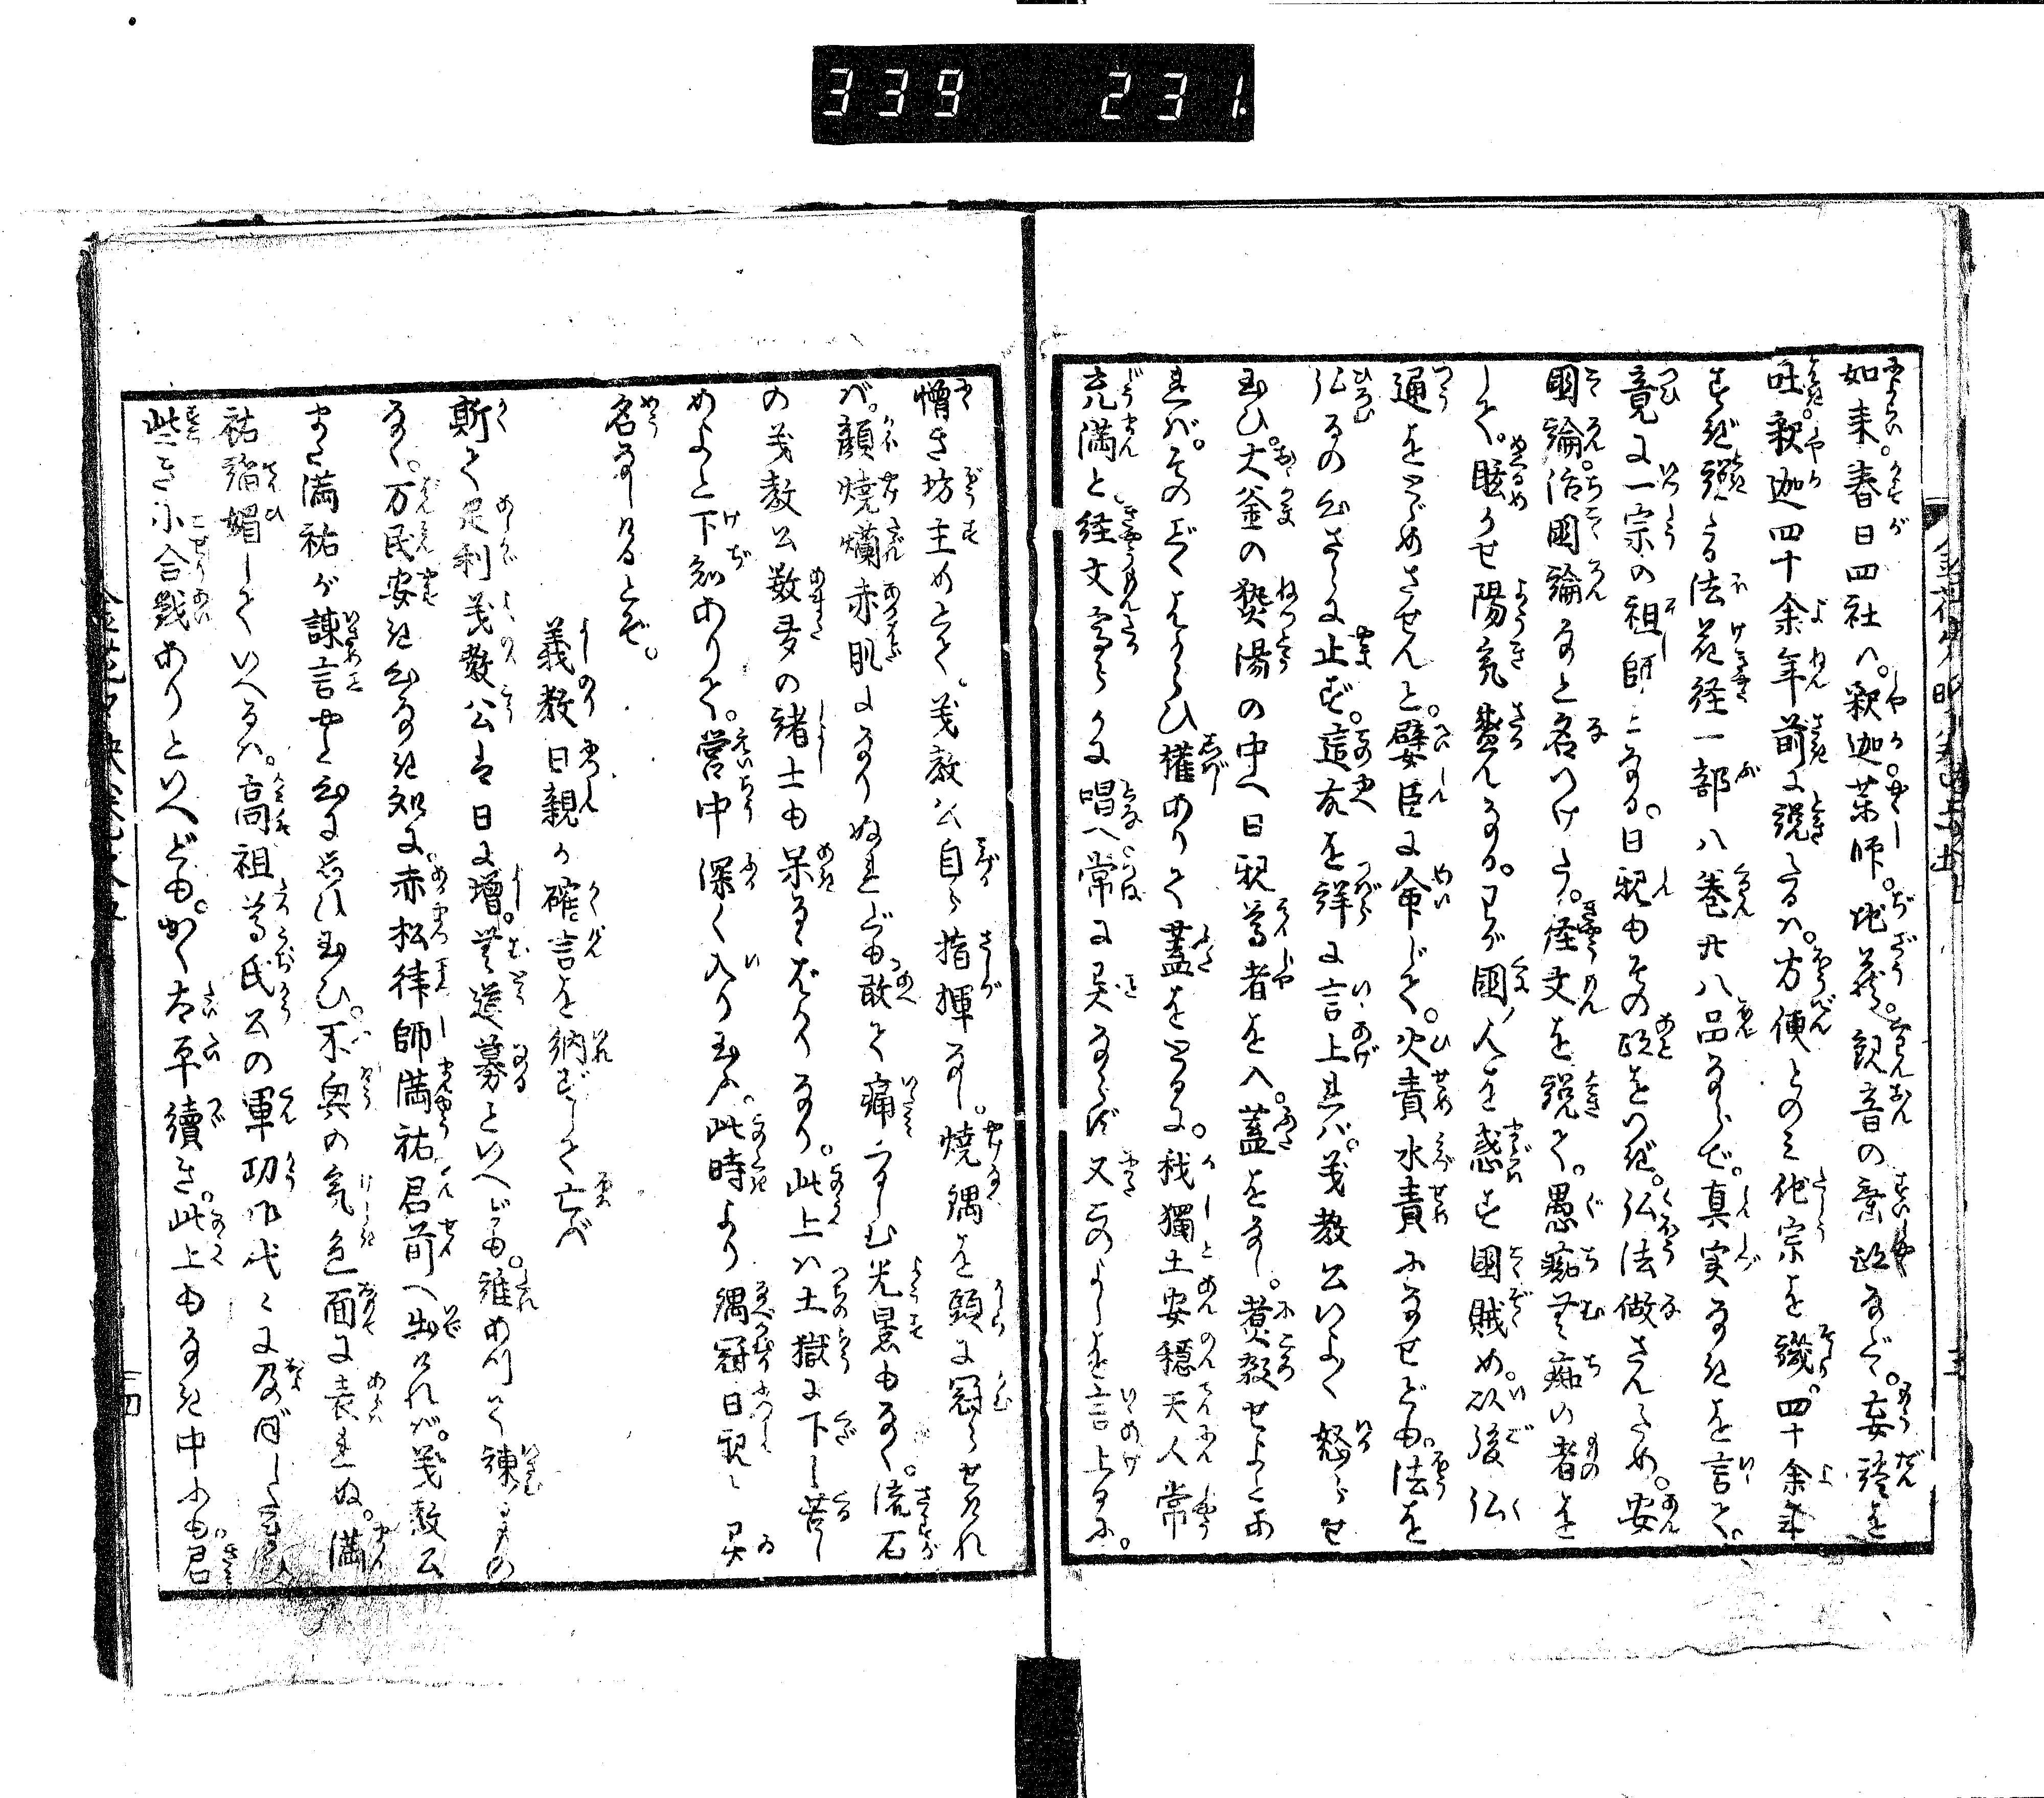 339 231
如来春日四社ハ。釈迦。薬師。地蔵。観音の垂跡など。妄談を
吐。釈迦四十余年前に説たるハ。方便とのミ他宗を譏。四十余年
すぎ説たる法花経一部八巻廿八品ならで。真実なきを言て。
竟に一宗の祖師となる。日親もその跡をつぎ。弘法做さんため。安
國論治國論なと名つけたる。経文を説て。愚痴無痴の者を
して。眩かせ陽気盗んなる。わが國人を惑す國賊め。以後弘
通をとゞめさせんと。嬖臣に命じて。火責水責になせども。法を
弘るの心さらに止ず。這故を詳に言上すれバ。義教公いよ〳〵怒らせ
玉ひ。大釜の熱湯の中へ日親尊者を入。蓋をなし。煮殺せよとあ
れバ。そのごくはからひ権ありて蓋をとるに。我獨土安穏天人常
充満と経文高らかに唱へ常に異ならず又このよしを言上るに。
憎き坊主めとて。義教公自ら指揮なし。焼鍋を頭に冠らせけれ
バ。顔焼爛赤肌になりぬれども敢て痛ましむ光景もなく。流石
の義教公数多の諸士も呆るゝばかりなり。此上ハ土獄に下し苦し
めよと下知ありて。営中深く入り玉ふ。此時より鍋冠日親と異
名なしけるとぞ。
義教日親か確言を納ずして亡ぶ
斯て足利義教公は日に増。無道募といへども。誰あつて諫るもの
なく。万民安き心なき処に。赤松律師満祐君前へ出けれバ。義教公
また満祐が諫言やと心に忌玉ひ。不興の気色面に表れぬ。満
祐諂媚していへるハ。高祖尊氏公の軍功御代々に及ぼし
些き小合戦ありといへども。かく太平續き。此上もなき中にも君